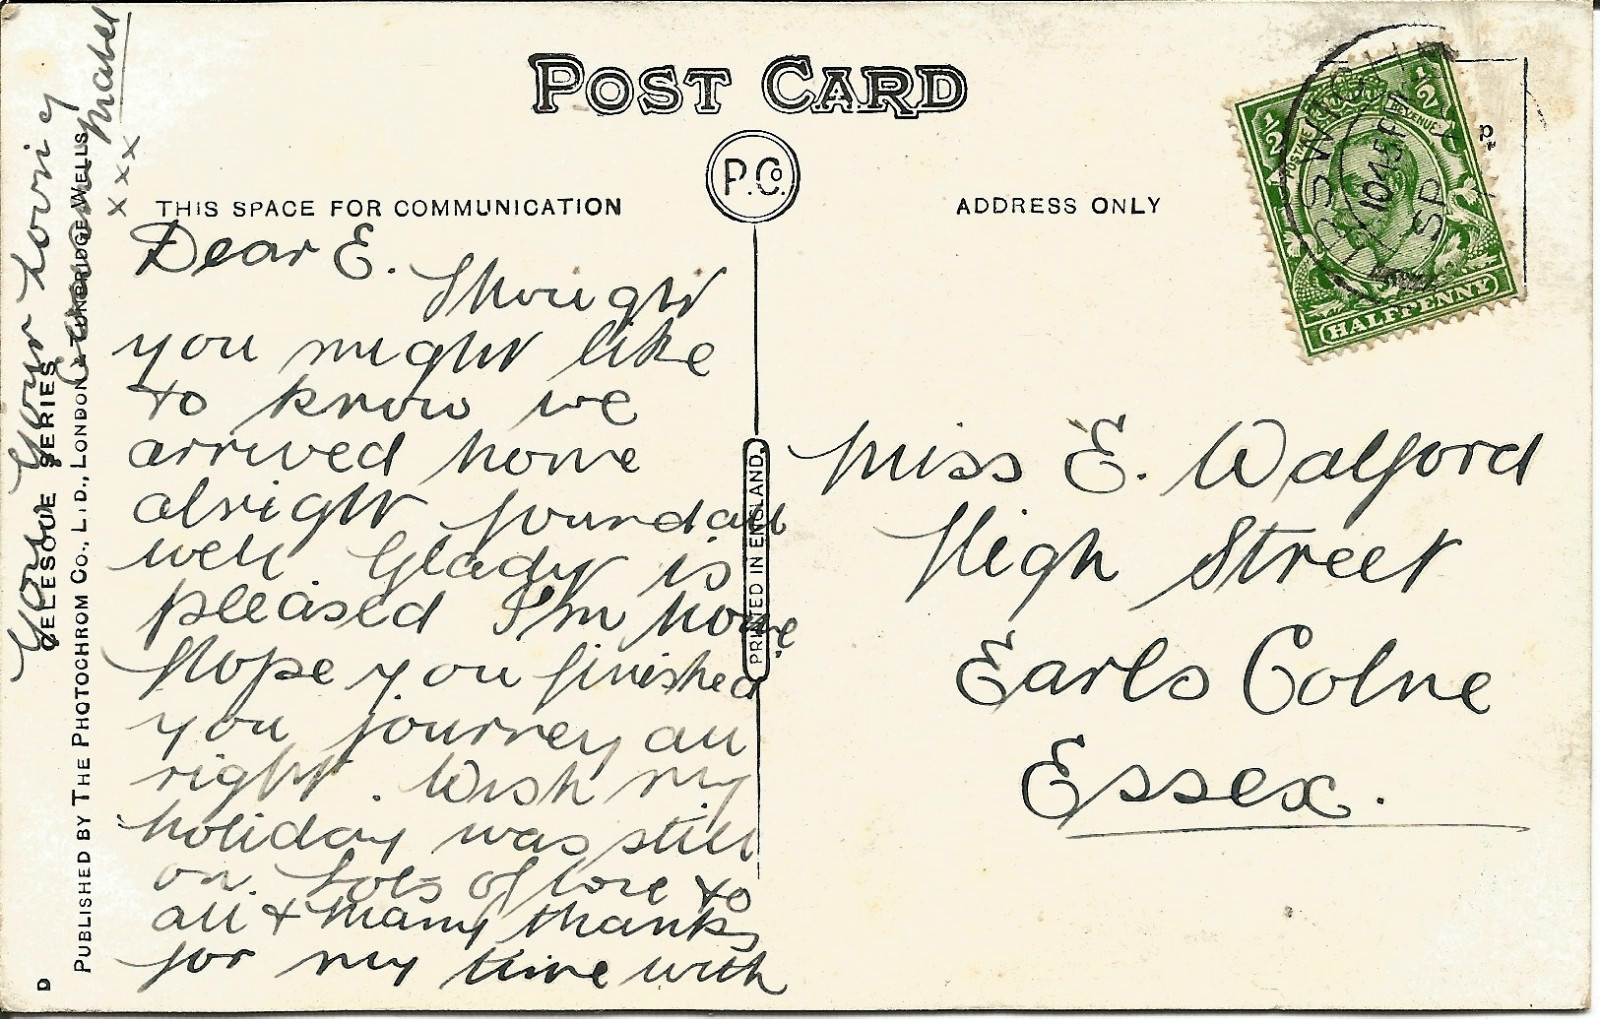 POST CARD
P.Co.
THIS SPACE FOR COMMUNICATION
ADDRESS ONLY
Dear E.
Thought
you might like
to know we
arrived home
alright found all
well Gladys is
pleased I'm home
Hope you finished
you journey all
right. Wish my
holiday was still
on. Lots of love to
all & many thanks
for my time with
you Your Loving
Mabel
x x x
Miss E. Walford
High Street
Earls Colne
Essex.
1/2 1/2
POSTAGE REVENUE
HALFPENNY
10.45 PM
SP 1
PRINTED IN ENGLAND.
CELESQUE SERIES
PUBLISHED BY THE PHOTOCHROM CO., LTD., LONDON & TUNBRIDGE WELLS
D